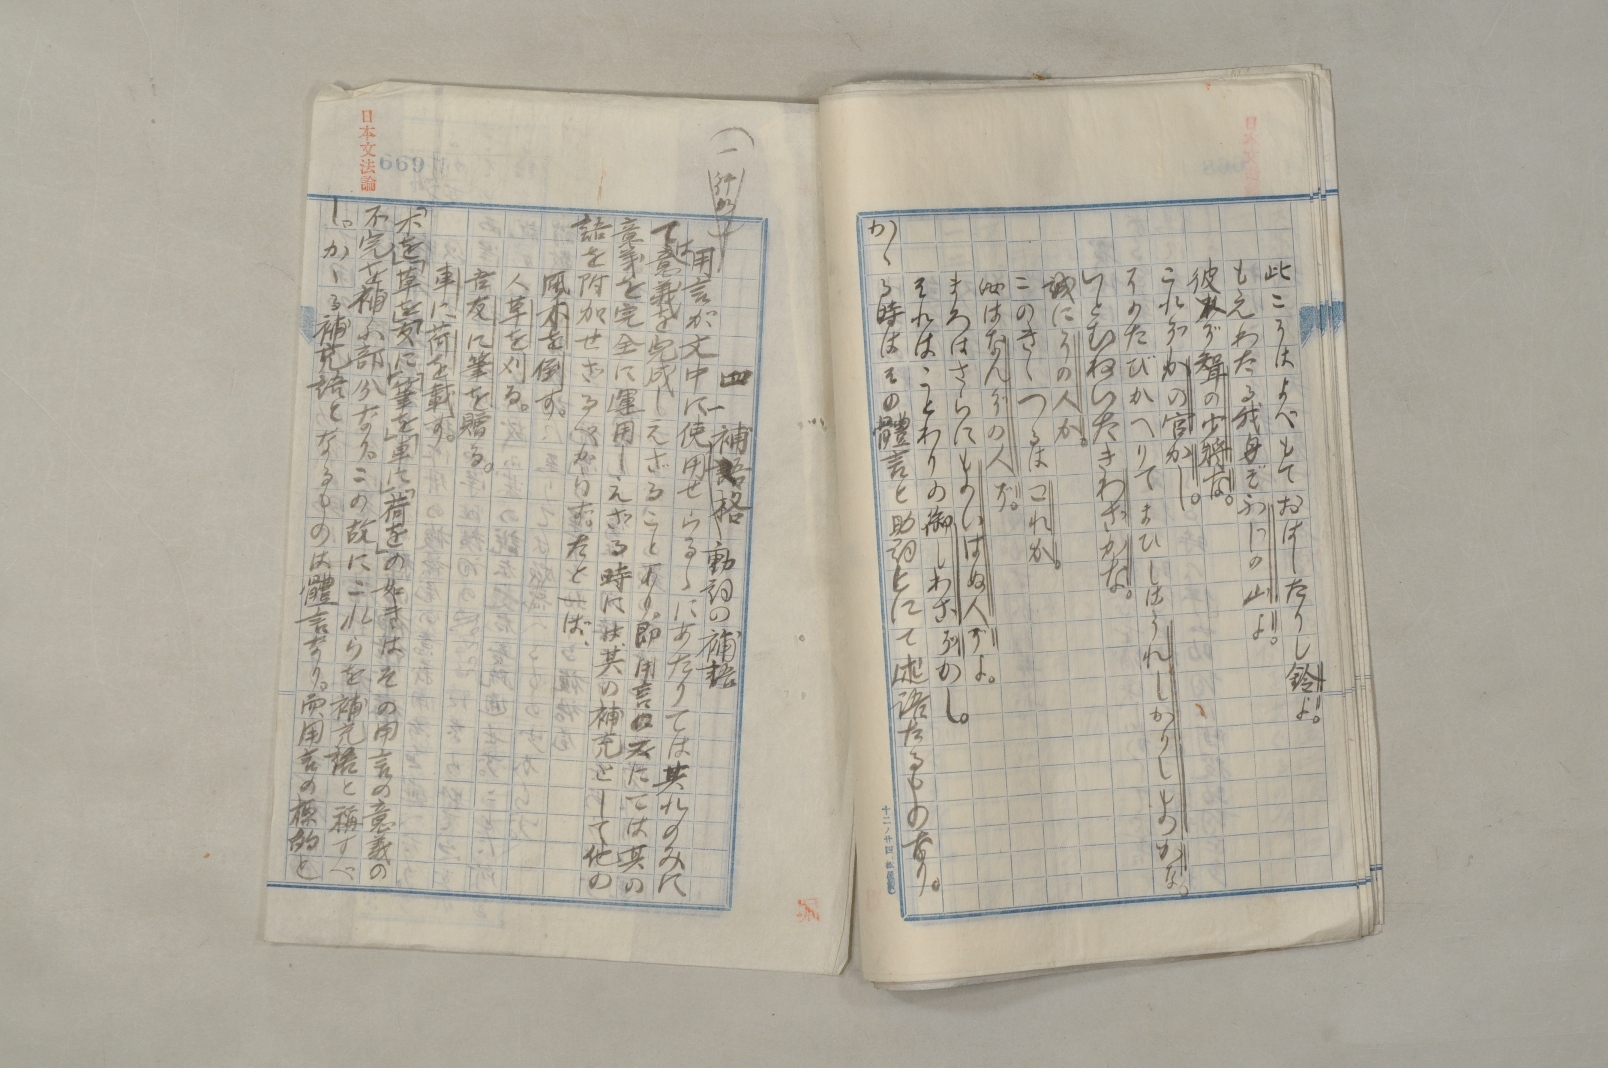 此ころはよべもておはしたりし鈴よ。
もえわたる我身ぞふじの山よ。
彼れが韓の少将な。
これぞかの官かし。
そのたびかへりてまひしはうれしかりしものかな。
いとむねいたきわざかな。
誠にその人か。
このきくつるはこれか。
此はなんぞの人ぞ。
まろはさらにものいはぬ人ぞよ。
それはことわりの御しわざぞかし。
かゝる時はその體言と助詞とにて述語たるものなり。
日本文法論
669
四 補語格 動詞の補格
用言が文中に使用せらるゝにあたりては其れのみに
ては意義を完成しえざることあり。即用言のみにては其の
意義を完全に運用しえざる時は其の補充として他の
語を附加せざるべからず。たとへば、
風木を倒す。
人草を刈る。
吾友に筆を贈る。
車に荷を載す。
「木を」「草を」「友に」「筆を」「車に」「荷を」の如きはその用言の意義の
不完を補ふ部分なり。この故にこれらを補充語と稱すべ
し。かゝる補充語となるものは體言なり。而用言の標的と